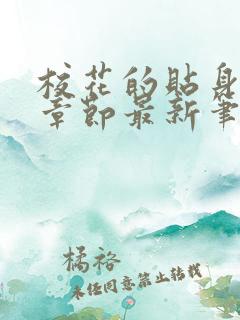 校花的貼身
章節最新筆
橘裕
未经同意禁止转载